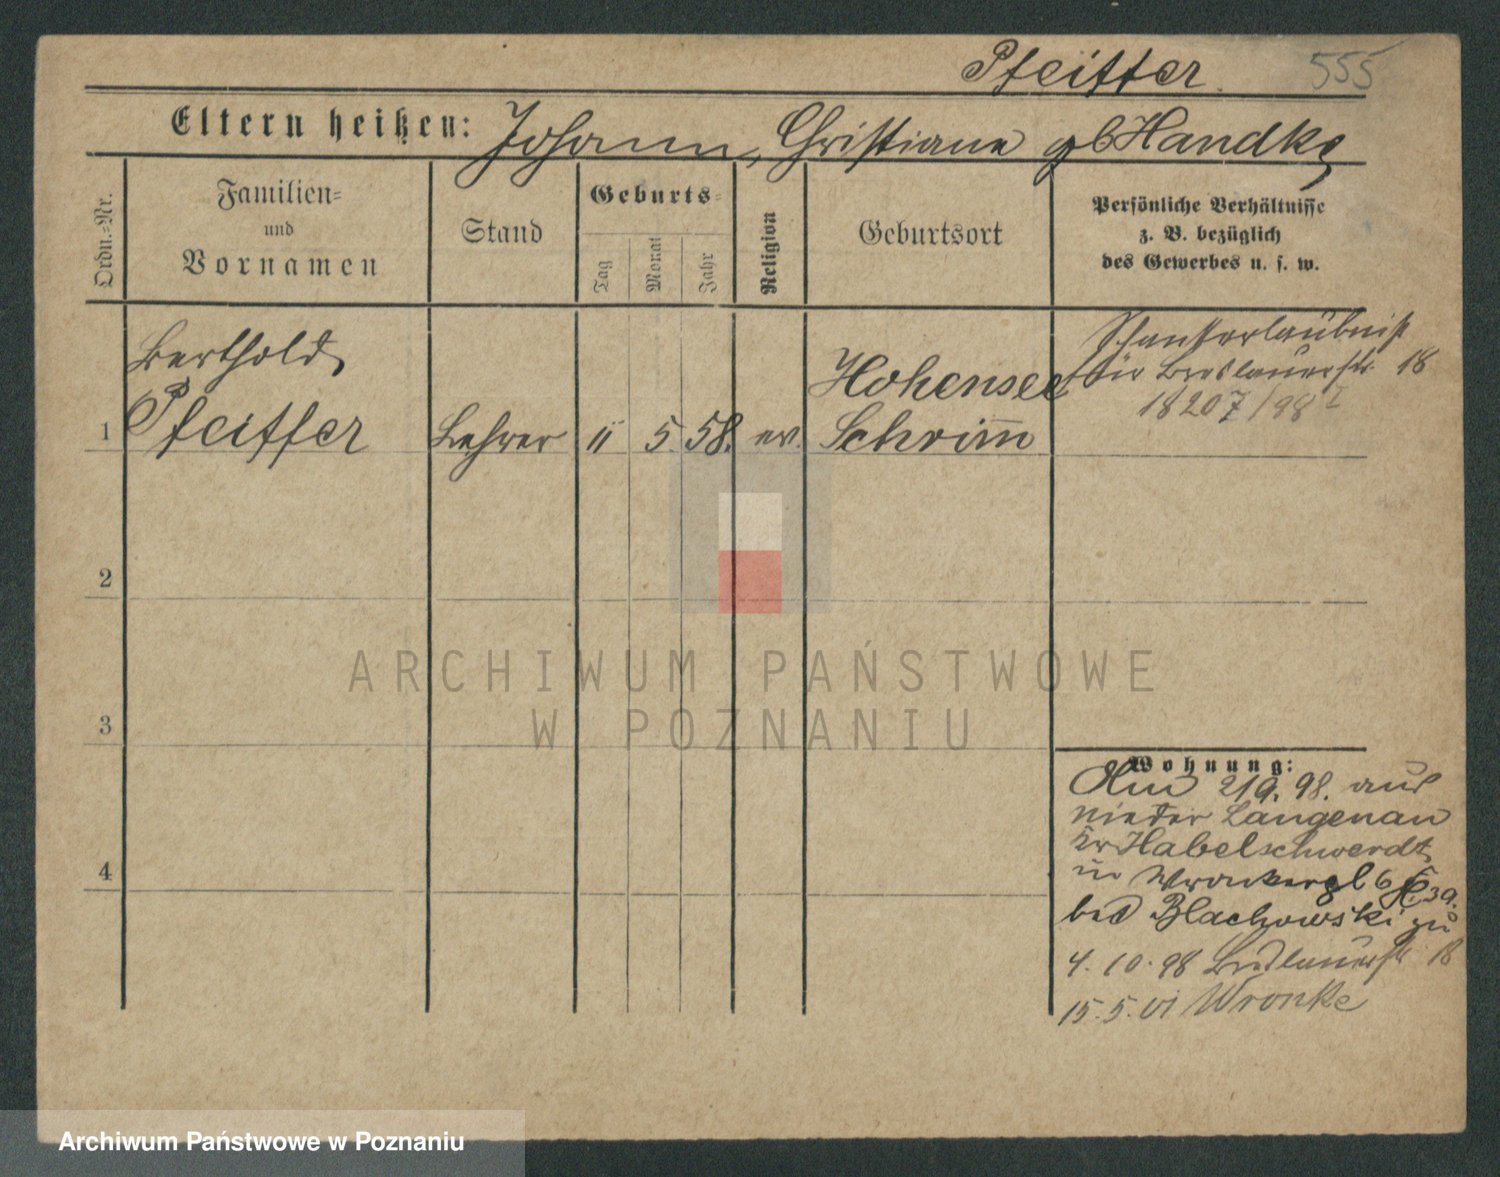 Pfeiffer. 555
Eltern heißen: Johann, Christiane gb Handke
Ordn.-Nr.
Familien-
und
Vornamen
Stand
Geburts-
Tag
Monat
Jahr
Religion
Geburtsort
Persönliche Verhältnisse
z. B. bezüglich
des Gewerbes u. s. w.
Berthold
Pfeiffer
1
Lehrer
11
5
58.
ev.
Hohensee
Schrim̄
Schankerlaubniß
für Breslauerstr. 18
18207/98 I
2
3
4
Wohnung:
Am 21 9. 98. aus
nieder Langenau
Kr Habelschwerdt
in Wronkerpl 6
bei Blachowski zu
4. 10. 98 Breslauerstr 18
15. 5. 01 Wronke
ARCHIWUM PAŃSTWOWE
W POZNANIU
Archiwum Państwowe w Poznaniu